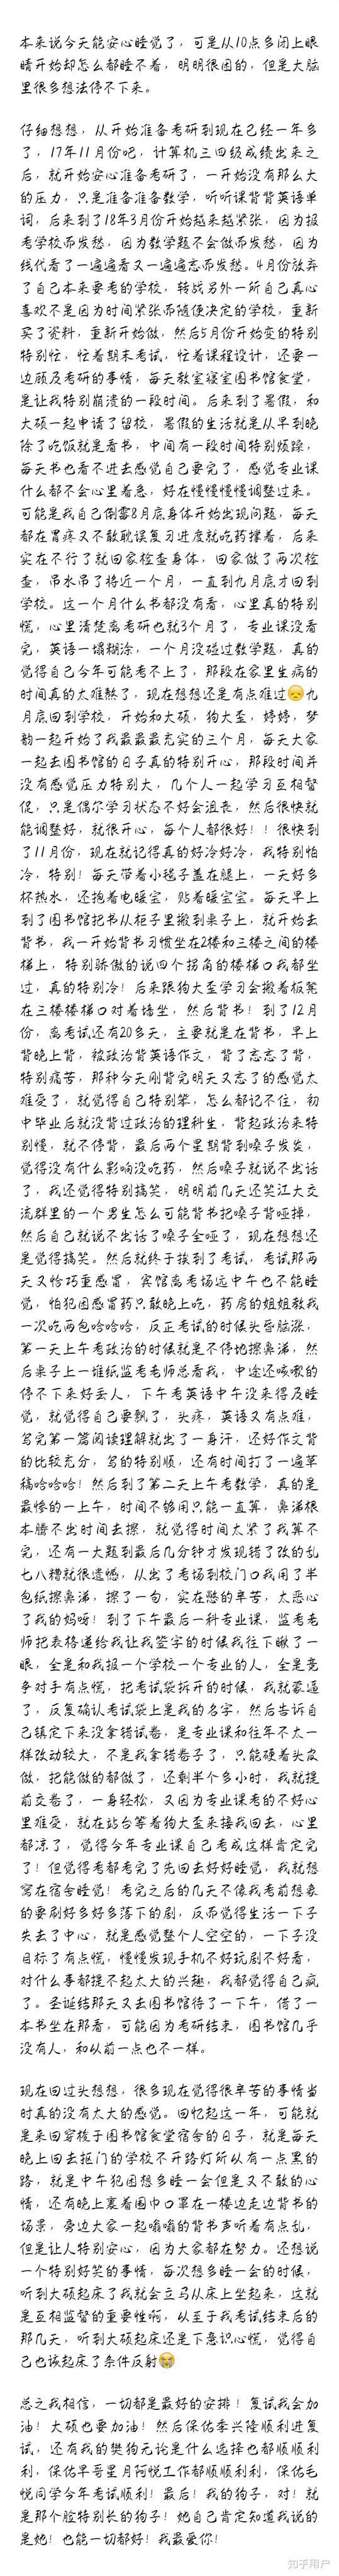 本来说今天能安心睡觉了，可是从10点多闭上眼
睛开始却怎么都睡不着，明明很困的，但是大脑
里很多想法停不下来。
仔细想想，从开始准备考研到现在已经一年多
了，17年11月份吧，计算机三四级成绩出来之
后，就开始安心准备考研了，一开始没有那么大
的压力，只是准备准备数学，听听课背背英语单
词，后来到了18年3月份开始越来越紧张，因为报
考学校而发愁，因为数学题不会做而发愁，因为
线代看了一遍遍看又一遍遍忘而发愁。4月份放弃
了自己本来要考的学校，转战另外一所自己真心
喜欢不是因为时间紧张而随便决定的学校，重新
买了资料，重新开始做，然后5月份开始变的特别
特别忙，忙着期末考试，忙着课程设计，还要一
边顾及考研的事情，每天教室寝室图书馆食堂，
是让我特别崩溃的一段时间。后来到了暑假，和
大硕一起申请了留校，暑假的生活就是从早到晚
除了吃饭就是看书，中间有一段时间特别烦躁，
每天书也看不进去感觉自己要完了，感觉专业课
什么都不会心里着急，好在慢慢慢慢调整过来。
可能是我自己倒霉8月底身体开始出现问题，每天
都在胃疼又不敢耽误复习进度就吃药撑着，后来
实在不行了就回家检查身体，回家做了两次检
查，吊水吊了将近一个月，一直到九月底才回到
学校。这一个月什么书都没有看，心里真的特别
慌，心里清楚离考研也就3个月了，专业课没看
完，英语一塌糊涂，一个月没碰过数学题，真的
觉得自己今年可能考不上了，那段在家里生病的
时间真的太难熬了，现在想想还是有点难过😞九
月底回到学校，开始和大硕，狗大歪，婷婷，梦
韵一起开始了我最最最充实的三个月，每天大家
一起去图书馆的日子真的特别开心，那段时间并
没有感觉压力特别大，几个人一起学习互相督
促，只是偶尔学习状态不好会沮丧，然后很快就
能调整好，就很开心，每个人都很好！！很快到
了11月份，现在就记得真的好冷好冷，我特别怕
冷，特别！每天带着小毯子盖在腿上，一天好多
杯热水，还抱着电暖宝，贴着暖宝宝。每天早上
到了图书馆把书从柜子里搬到桌子上，就开始去
背书，我一开始背书习惯坐在2楼和三楼之间的楼
梯上，特别骄傲的说四个拐角的楼梯口我都坐
过，真的特别冷！后来跟狗大歪学习会搬着板凳
在三楼楼梯口对着墙坐，然后背书！到了12月
份，离考试还有20多天，主要就是在背书，早上
背晚上背，被政治背英语作文，背了忘忘了背，
特别痛苦，那种今天刚背完明天又忘了的感觉太
难受了，就觉得自己特别笨，怎么都记不住，初
中毕业后就没背过政治的理科生，背起政治来特
别慢，就不停背，最后两个星期背到嗓子发炎，
觉得没有什么影响没吃药，然后嗓子就说不出话
了，我还觉得特别搞笑，明明前几天还笑江大交
流群里的一个男生怎么可能背书把嗓子背哑掉，
然后自己就说不出话了嗓子全哑了，现在想想还
是觉得搞笑。然后就终于挨到了考试，考试那两
天又恰巧重感冒，宾馆离考场远中午也不能睡
觉，怕犯困感冒药只敢晚上吃，药房的姐姐教我
一次吃两包哈哈哈，反正考试的时候头昏脑涨，
第一天上午考政治的时候就是不停地擦鼻涕，然
后桌子上一堆纸监考老师总看我，中途还咳嗽的
停不下来好丢人，下午考英语中午没来得及睡
觉，就觉得自己要飘了，头疼，英语又有点难，
写完第一篇阅读理解就出了一身汗，还好作文背
的比较充分，写的特别顺，还有时间打了一遍草
稿哈哈哈！然后到了第二天上午考数学，真的是
最惨的一上午，时间不够用只能一直算，鼻涕根
本腾不出时间去擦，就觉得时间太紧了我算不
完，还有一大题到最后几分钟才发现错了改的乱
七八糟就很遗憾，从出了考场到校门口我用了半
包纸擦鼻涕，擦了一句，实在憋的辛苦，太恶心
了我的妈呀！到了下午最后一科专业课，监考老
师把表格递给我让我签字的时候我往下瞅了一
眼，全是和我报一个学校一个专业的人，全是竞
争对手有点慌，把考试袋拆开的时候，我就蒙逼
了，反复确认考试袋上是我的名字，然后告诉自
己镇定下来没拿错试卷，是专业课和往年不太一
样改动较大，不是我拿错卷子了，只能硬着头皮
做，把能做的都做了，还剩半个多小时，我就提
前交卷了，一身轻松，又因为专业课考的不好心
里难受，就在站台等着狗大歪来接我回去，心里
都凉了，觉得今年专业课自己考成这样肯定完
了！但觉得考都考完了先回去好好睡觉，我就想
窝在宿舍睡觉！考完之后的几天不像我考前想象
的要刷好多好多落下的剧，反而觉得生活一下子
失去了中心，就是感觉整个人空空的，一下子没
目标了有点慌，慢慢发现手机不好玩剧不好看，
对什么事都提不起太大的兴趣，我都觉得自己疯
了。圣诞结那天又去图书馆待了一下午，借了一
本书坐在那看，可能因为考研结束，图书馆几乎
没有人，和从前一点也不一样。
现在回过头想想，很多现在觉得很辛苦的事情当
时真的没有太大的感觉。回忆起这一年，可能就
是来回穿梭于图书馆食堂宿舍的日子，就是每天
晚上回去抠门的学校不开路灯所从有一点黑的
路，就是中午犯困想多睡一会但是又不敢的心
情，还有晚上裹着围巾口罩在一楼边走边背书的
场景，旁边大家一起嗡嗡的背书声听着有点乱，
但是让人特别安心，因为大家都在努力。还想说
一个特别好笑的事情，每次想多睡一会的时候，
听到大硕起床了我就会立马从床上坐起来，这就
是互相监督的重要性啊，从至于我考试结束后的
那几天，听到大硕起床还是下意识心慌，觉得自
己也该起床了条件反射😭
总之我相信，一切都是最好的安排！复试我会加
油！大硕也要加油！然后保佑李兴隆顺利进复
试，还有我的樊狗无论是什么选择也都顺顺利
利，保佑早哥星月阿悦工作都顺顺利利，保佑毛
悦同学今年考试顺利！最后！我的狗子，对！就
是那个脸特别长的狗子！她自己肯定知道我说的
是她！也能一切都好！我最爱你！
知乎用户